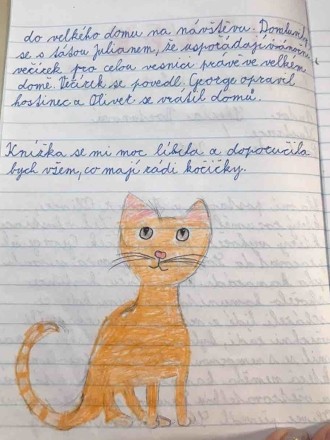 do velkého domu na návštěvu. Domluvily
se s tátou Julianem, že uspořádají vánoční
večírek pro celou vesnici právě ve velkém
domě. Večírek se povedl, George opravil
hostinec a Oliver se vrátil domů.
Knížka se mi moc líbila a doporučila
bych všem, co mají rádi kočičky.